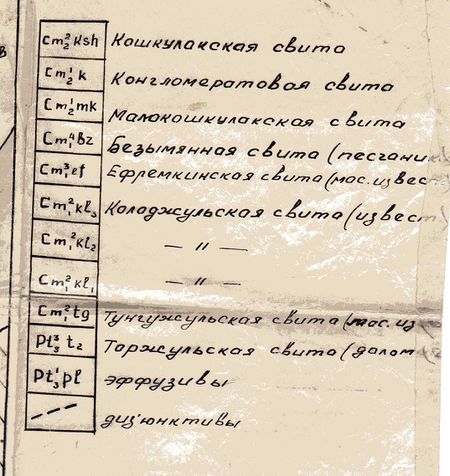 в
Cm₂²Ksh Кошкулакская свита
Cm₂¹k Конгломератовая свита
Cm₂¹mk Малокошкулакская свита
Cm₁⁴Bz Безымянная свита (песчани
Cm₁³ef Ефремкинская свита (мас. извес
Cm₁²kl₃ Колоджульская свита (извест
Cm₁²kl₂ — " —
Cm₁²kl₁ — " —
Cm₁²tg Тунгужульская свита (мас. из
Pt₃³t₂ Таржульская свита (долом
Pt₃¹pl эффузивы
дизъюнктивы